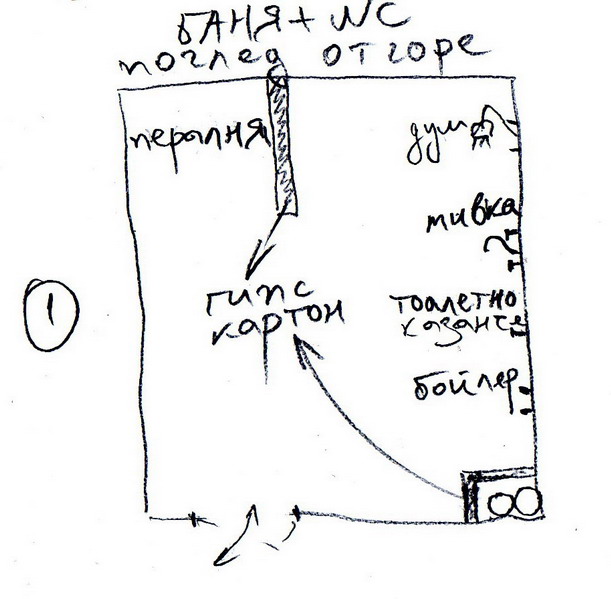 БАНЯ + WC
поглед отгоре
пералня
душ
мивка
тоалетно
казанче
гипс
картон
бойлер
1